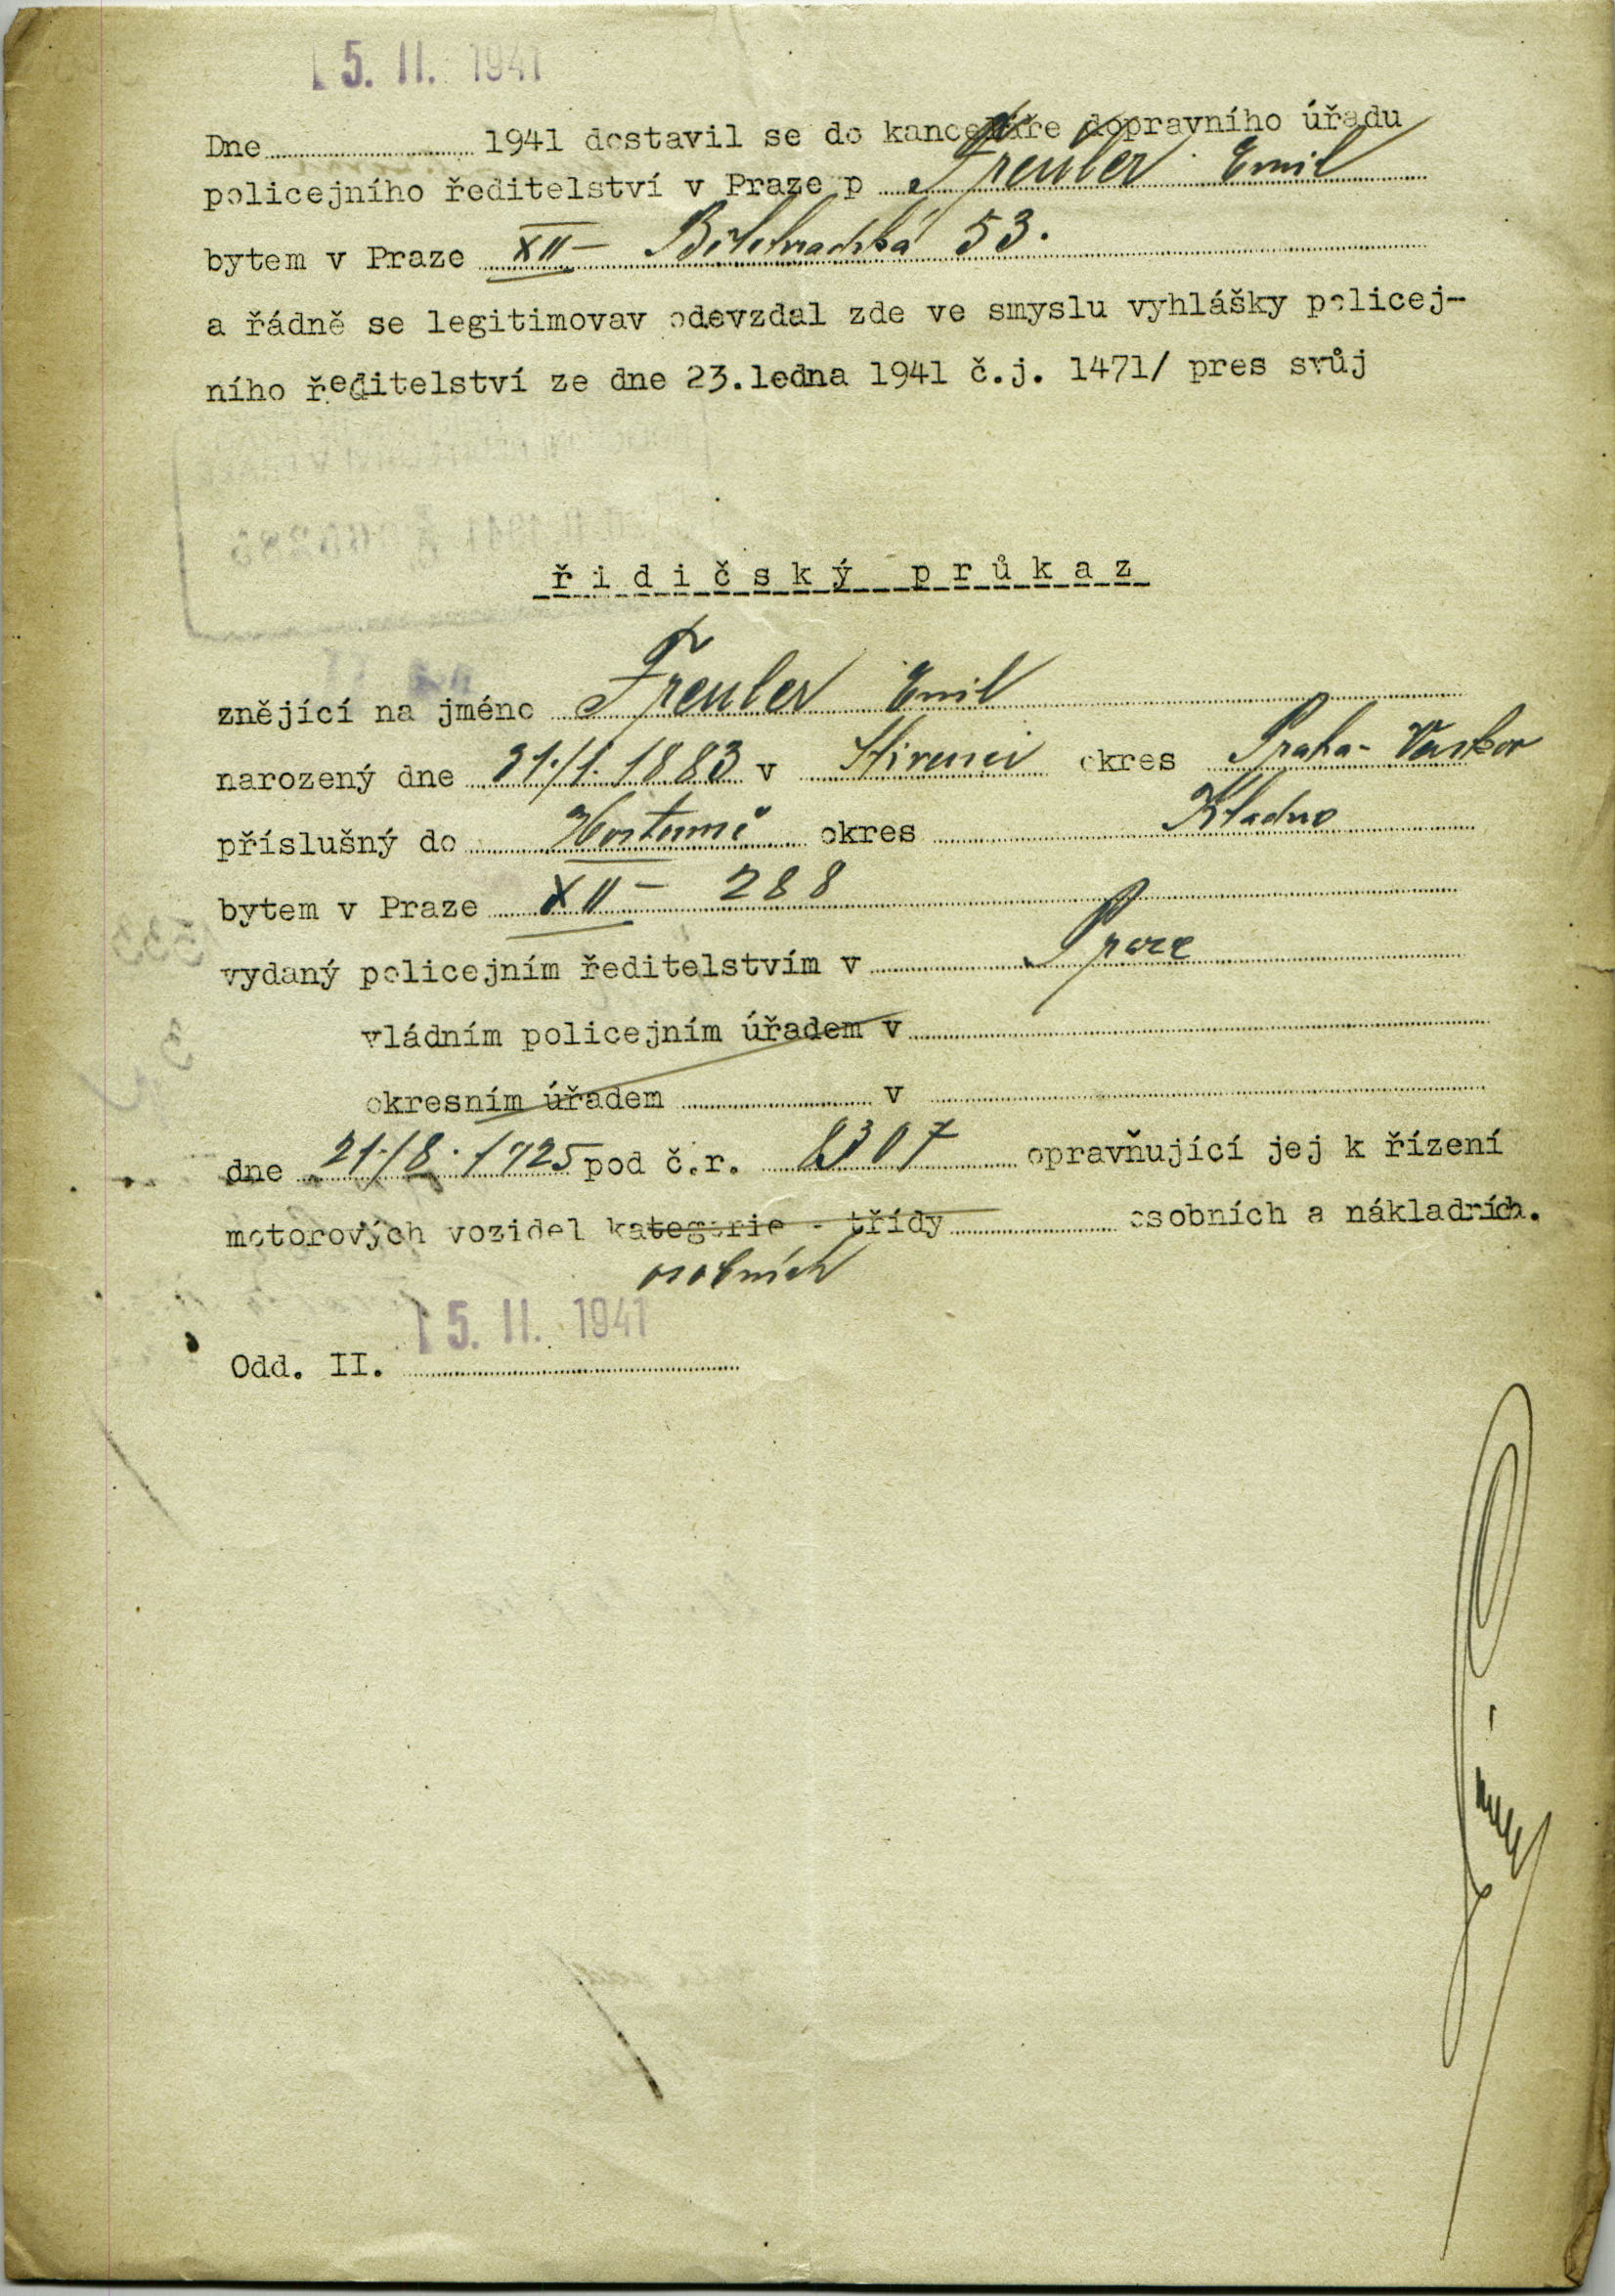 15. II. 1941
Dne 1941 dostavil se do kanceláře dopravního úřadu
policejního ředitelství v Praze p Freuler Emil
bytem v Praze XII – Bělehradská 53.
a řádně se legitimovav odevzdal zde ve smyslu vyhlášky policej-
ního ředitelství ze dne 23.ledna 1941 č.j. 1471/ pres svůj
řidičský průkaz
znějící na jméno Freuler Emil
narozený dne 21./1. 1883 v okres Praha-
příslušný do okres Kladno
bytem v Praze XII – 288
vydaný policejním ředitelstvím v Praze
vládním policejním úřadem v
okresním úřadem v
dne 21./8. 1925 pod č.r. 8307 opravňující jej k řízení
motorových vozidel kategorie - třídy osobních a nákladních.
osobních
15. II. 1941
Odd. II.